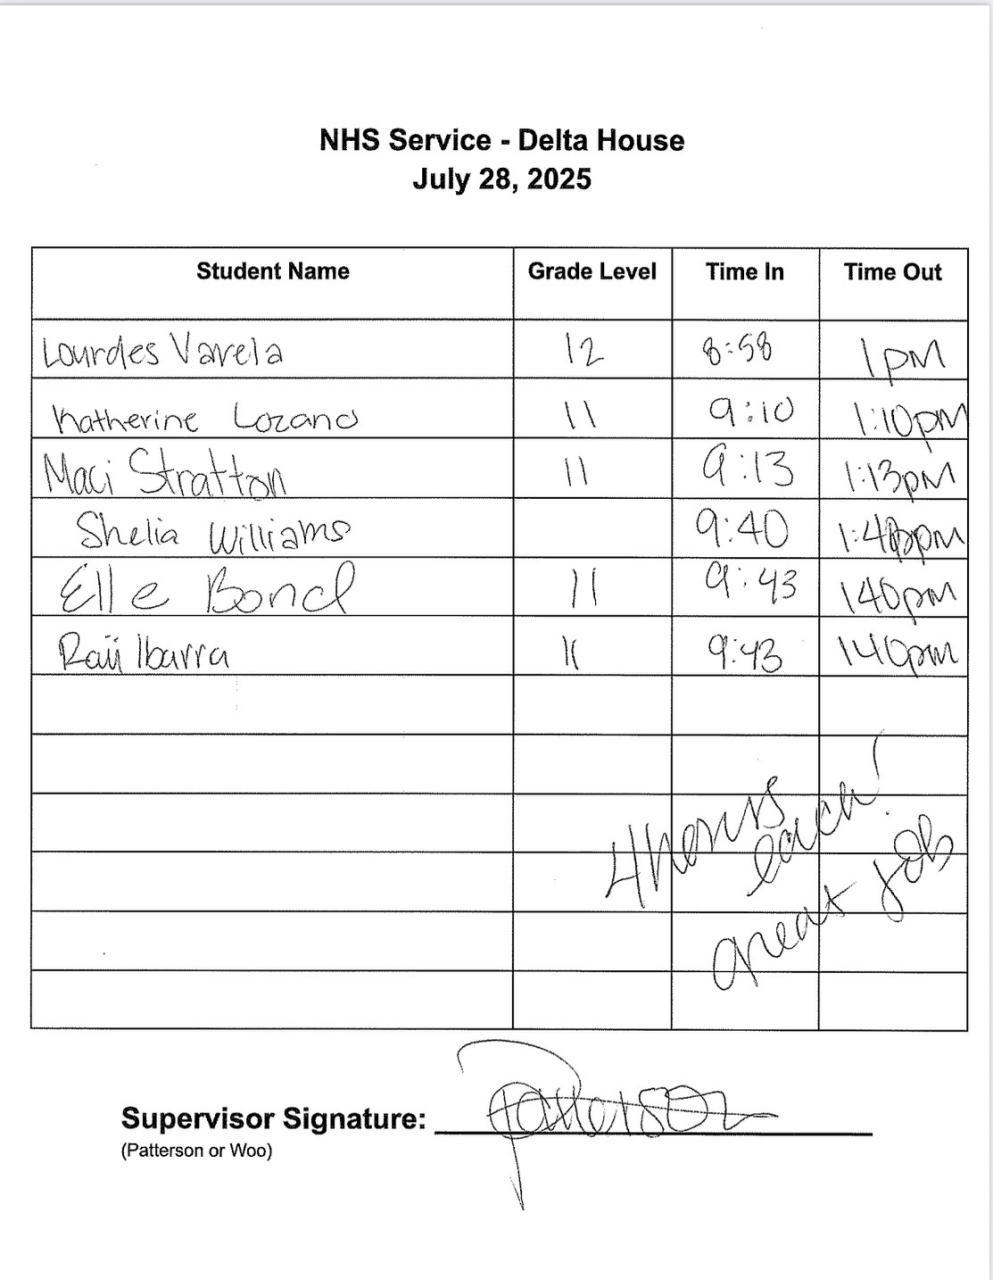 NHS Service - Delta House
July 28, 2025
Student Name Grade Level Time In Time Out
Lourdes Varela 12 8:58 1pm
Katherine Lozano 11 9:10 1:10pm
Maci Stratton 11 9:13 1:13pm
Shelia Williams 9:40
Elle Bond 11 9:43 140pm
Ibarra 11 9:43 140pm
4 hours
each!
great job
Supervisor Signature: Patterson
(Patterson or Woo)